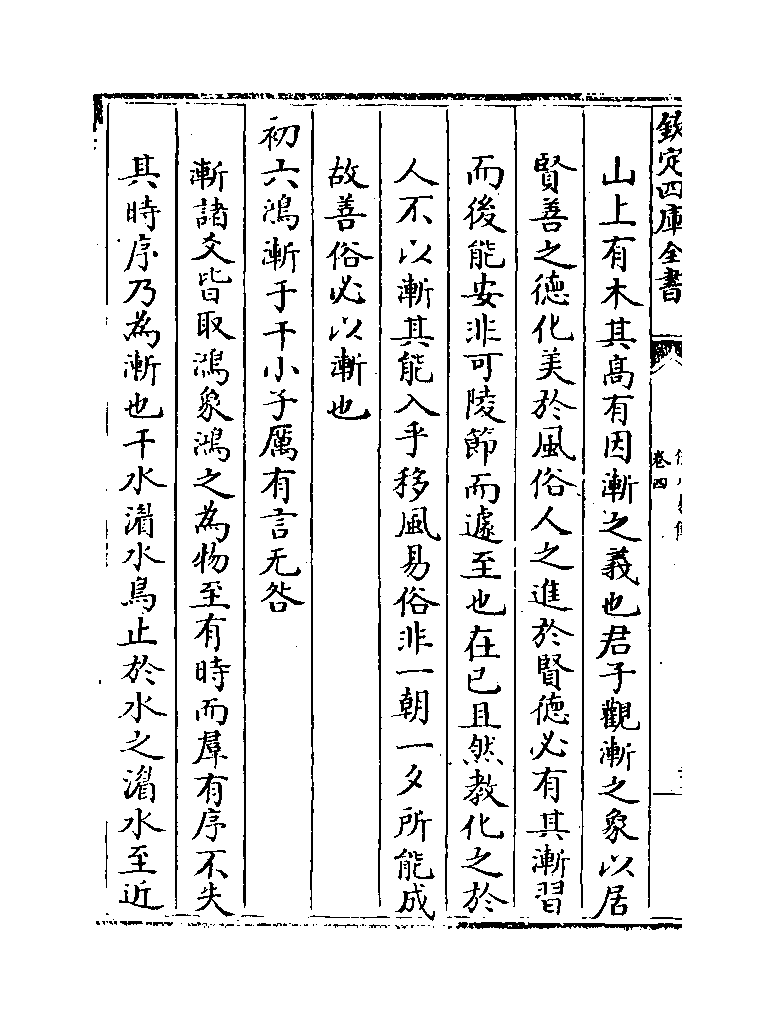 欽定四庫全書
卷四
山上有木其髙有因漸之義也君子觀漸之象以居
賢善之徳化美於風俗人之進於賢徳必有其漸習
而後能安非可陵節而遽至也在已且然教化之於
人不以漸其能入乎移風易俗非一朝一夕所能成
故善俗必以漸也
初六鴻漸于干小子厲有言无咎
漸諸爻皆取鴻象鴻之為物至有時而羣有序不失
其時序乃為漸也干水湄水鳥止於水之湄水至近